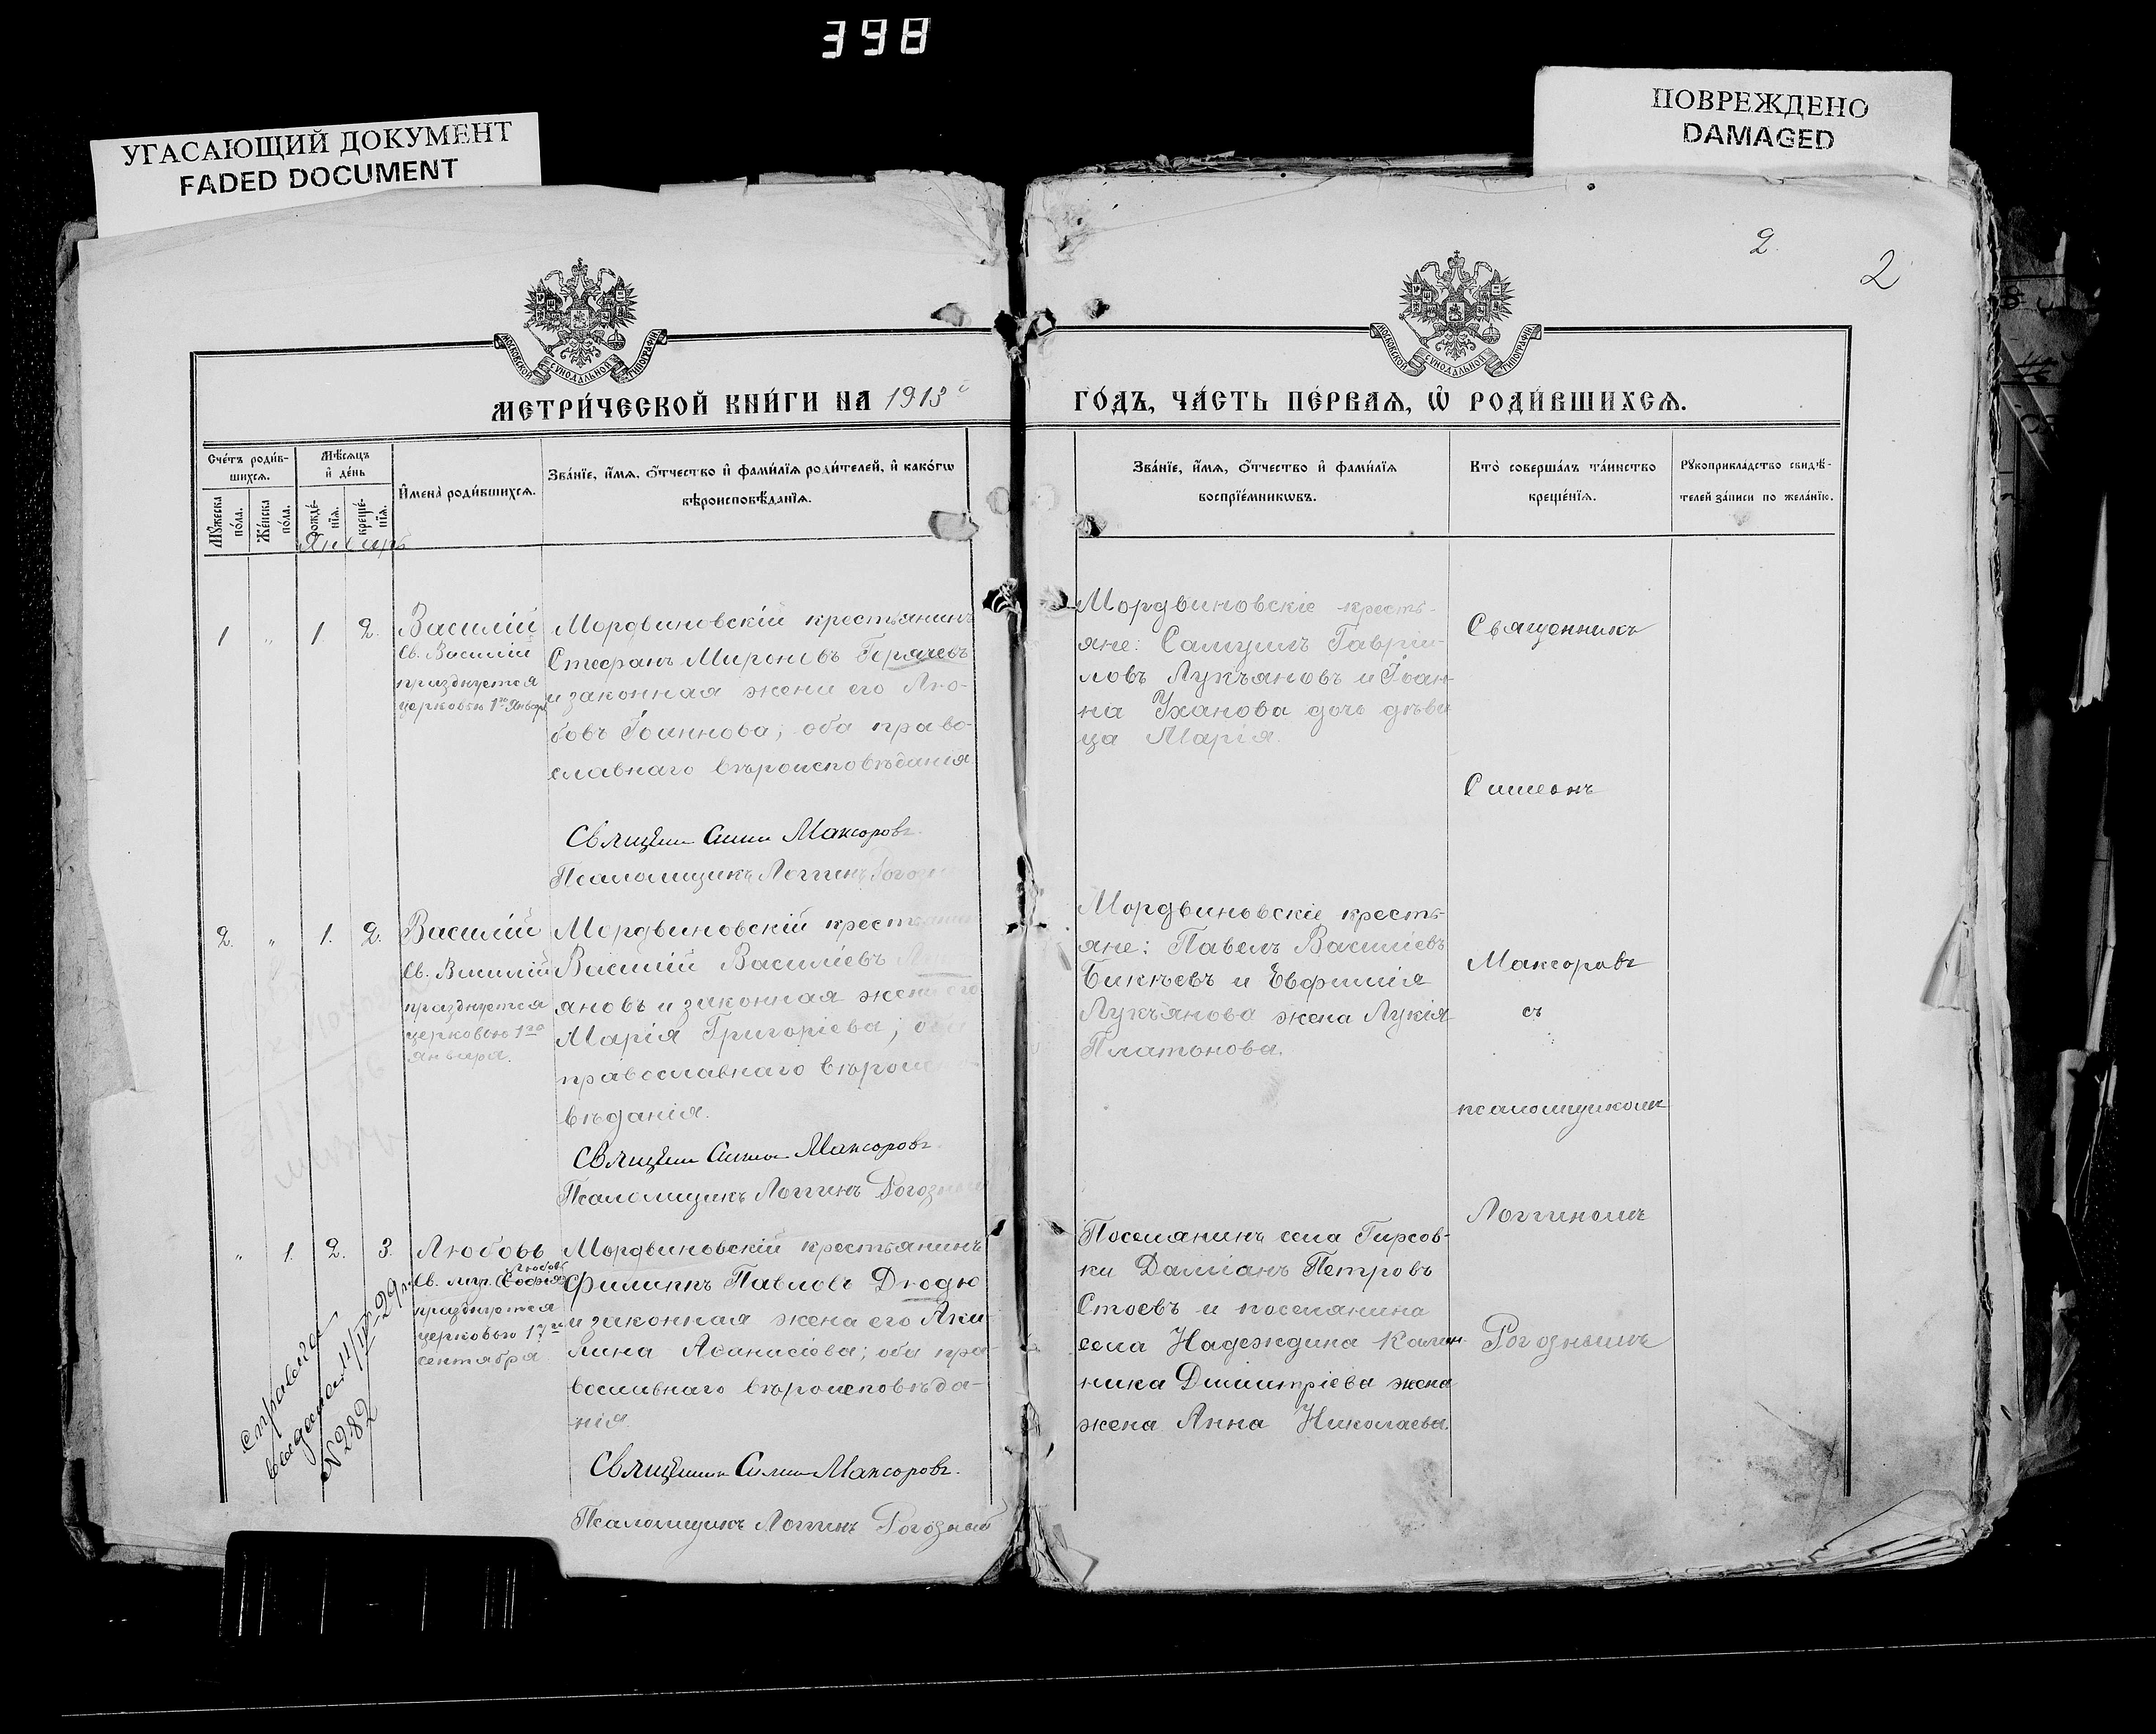 398
УГАСАЮЩИЙ ДОКУМЕНТ
FADED DOCUMENT
ПОВРЕЖДЕНО
DAMAGED
2.
2
МОСКОВСКОЙ СѴНОДАЛЬНОЙ ТИПОГРАФІИ
МОСКОВСКОЙ СѴНОДАЛЬНОЙ ТИПОГРАФІИ
МЕТРИ́ЧЕСКОЙ КНИ́ГИ НА 1913й
ГО́ДЪ, ЧА́СТЬ ПЕ́РВАЯ, Ѡ҆ РОДИ́ВШИХСЯ.
Сче́тъ роди́в-
шихсѧ.
Мꙋжеска по́ла.
Же́нска по́ла.
Мѣ́сѧцъ
и҆ де́нь
рожде́-
нїѧ.
креще́-
нїѧ.
И҆мена̀ роди́вшихсѧ.
Зва́нїе, и҆́мѧ, ѻ҆́тчество и҆ фами́лїѧ роди́телей, и҆ како́гѡ
вѣроисповѣ́данїѧ.
Зва́нїе, и҆́мѧ, ѻ҆́тчество и҆ фами́лїѧ
воспрїе́мникѡвъ.
Кто̀ соверша́лъ та́инство
креще́нїѧ.
Рꙋкоприкла́дство свидѣ́-
телей за́писи по жела́нїю.
Январь
1 " 1. 2.
Василій
Св. Василій
празднуется
церковью 1го Января
Мордвиновскій крестьянинъ
Стефанъ Мироновъ Горячевъ
и законная жена его Лю-
бовь Іоаннова; оба право-
славнаго вѣроисповѣданія
Священ. Симе Максоровъ
Псаломщикъ Логгинъ
Мордвиновскіе кресть-
яне: Самуилъ Гаврiи-
ловъ Лукъяновъ и Іоан-
на Уханова дочь дѣви
ца Марія.
2. " 1. 2.
Василій
Св. Василій
празднуется
церковью 1го
января.
Мордвиновскій
Василій Василіевъ
яновъ и законная жена его
Марія Григоріева; оба
православнаго вѣроиспо
вѣданія.
Священ. Симе Максоровъ
Псаломщикъ Логгинъ Рогозный
Мордвиновскіе кресть-
яне: Павелъ Василіевъ
Бикѣевъ и Евфимія
Лукъянова жена Лукія
Платонова.
" 1. 2. 3.
Любовь
Св. муч. Любовь
празднуется
церковью 17го
сентября
Мордвиновскій крестьянинъ
Филиппъ Павловъ Дюдю
и законная жена его Аки-
лина Аѳанасіева; оба пра-
вославнаго вѣроисповѣда-
нія.
Священ. Симе Максоровъ.
Псаломщикъ Логгинъ Рогозный
Поселянинъ села Гирсов-
ки Даміанъ Петровъ
Стоевъ и поселянина
села Надеждина Калин-
ника Димитріева жена
жена Анна Николаева.
Священникъ
Симеонъ
Максоровъ
съ
псаломщикомъ
Логгиномъ
Рогознымъ
справка
выдана 11/IV-29 г.
№282